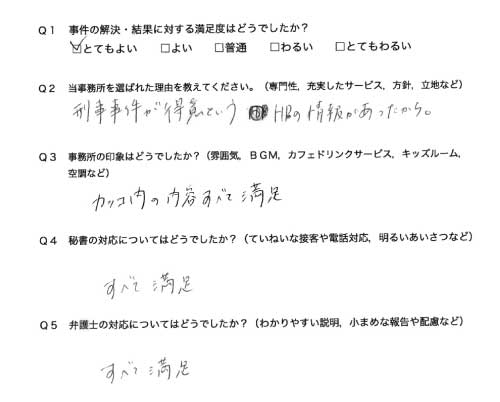 Q1 事件の解決・結果に対する満足度はどうでしたか?
☑とてもよい □よい □普通 □わるい □とてもわるい
Q2 当事務所を選ばれた理由を教えてください。(専門性,充実したサービス,方針,立地など)
刑事事件が得意という HPの情報があったから。
Q3 事務所の印象はどうでしたか?(雰囲気,BGM,カフェドリンクサービス,キッズルーム,
空調など)
カッコ内の内容すべて満足
Q4 秘書の対応についてはどうでしたか?(ていねいな接客や電話対応,明るいあいさつなど)
すべて満足
Q5 弁護士の対応についてはどうでしたか?(わかりやすい説明,小まめな報告や配慮など)
すべて満足